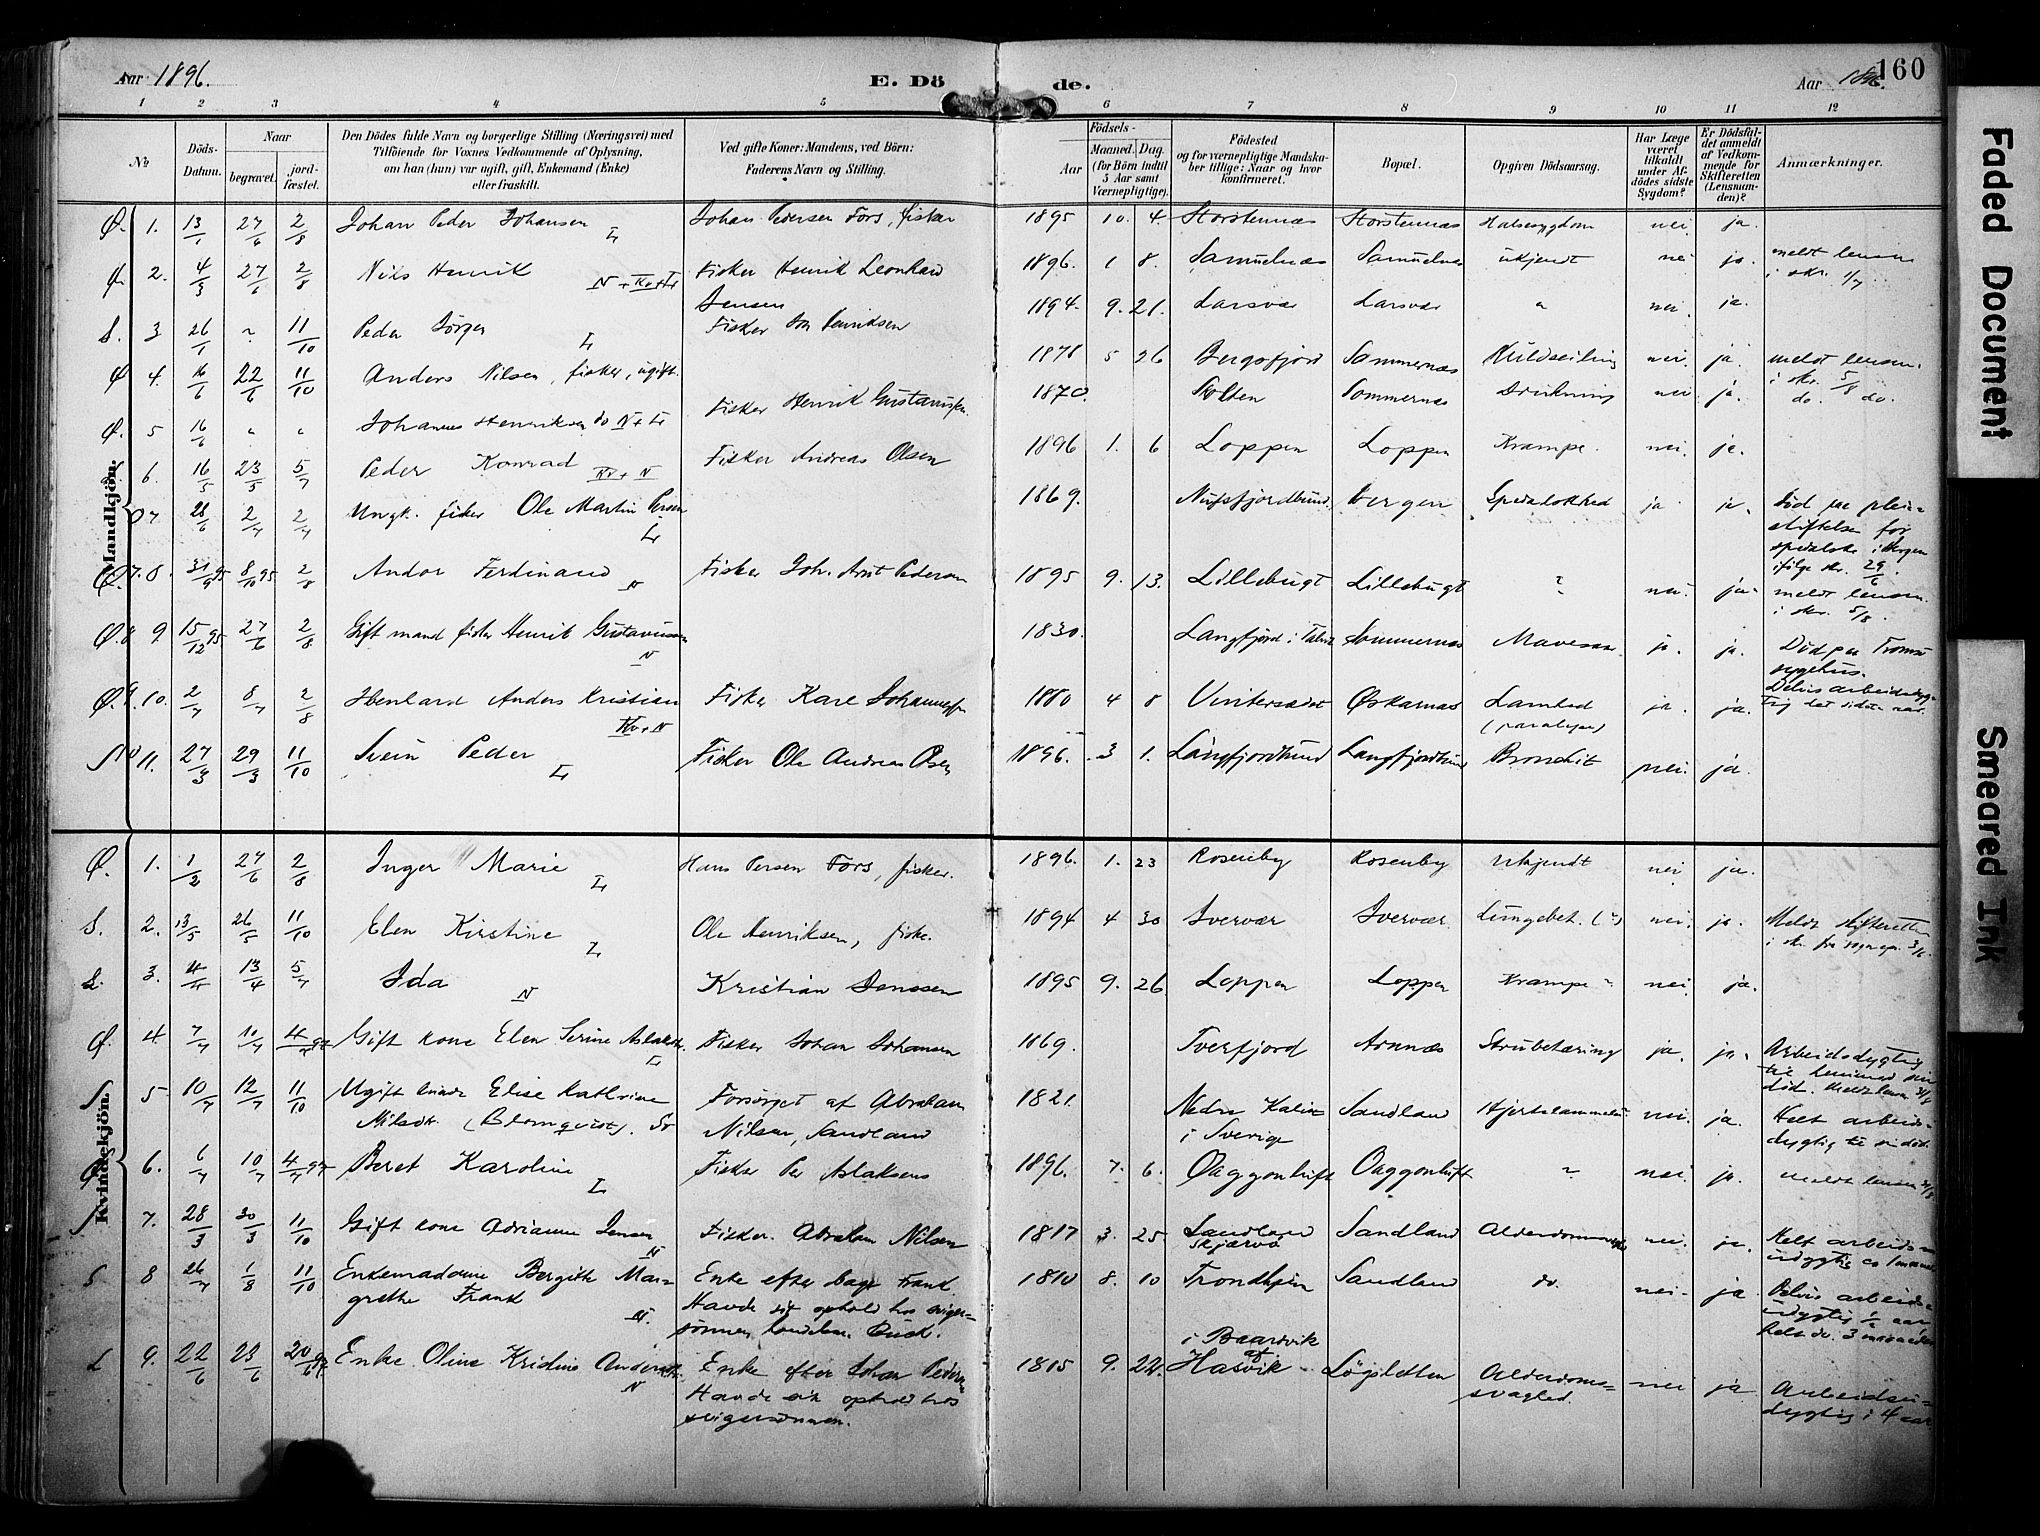 Aar 1896.
E. Döde.
Aar 1896.
160
Faded Document
Smeared Ink
1 2 3 4 5 6 7 8 9 10 11 12
No
Döds-Datum.
Naar
begravet.
jord-fæstet.
Den Dödes fulde Navn og borgerlige Stilling (Næringsvei) med
Tilföiende for Voxnes Vedkommende af Oplysning,
om han (hun) var ugift, gift, Enkemand (Enke)
eller fraskilt.
Ved gifte Koner: Mandens, ved Börn:
Faderens Navn og Stilling.
Födsels-
Aar
Maaned. Dag.
(for Börn indtil
5 Aar samt
Værnepligtige).
Födested
og for værnepligtige Mandska-
ber tillige: Naar og hvor
konfirmeret.
Bopæl.
Opgiven Dödsaarsag.
Har Læge
været
tilkaldt
under Af-
dödes sidste
Sygdom?
Er Dödsfal-
det anmeldt
af Vedkom-
mende for
Skifteretten
(Lensman-
den)?
Anmærkninger.
Mandkjön.
Ø. 1. 13/1 27/6 2/8 Johan Peder Johansen L Johan Pedersen Fors, fisker 1895 10. 4. Storstennæs Storstennæs Halsesygdom nei. ja.
Ø. 2. 4/3 27/6 2/8 Nils Henrik N + Kv + L Fisker Henrik Leonhard Jensen 1896. 1 8. Samuelnæs Samuelnæs ukjendt nei ja. meldt lensm. i skr. 1/7
S. 3 26/1 " 11/10 Peder Jörgen L Fisker Henriksen 1894. 9. 21. Larsvær Larsvær " nei. ja.
Ø 4. 16/6 22/6 11/10 Anders Nilsen, fisker, ugift. 1878 5 26 Bergsfjord Sommernæs Kuldseiling nei. ja. meldt lensm. i skr. 5/8
Ø. 5 16/6 " " Johannes Henriksen do N + L Fisker Henrik Gustavussen 1870. Skolten Sommernæs Drukning nei ja. do. do.
6. 16/5 23/5 5/7 Peder Konrad Kv + N Fisker Andreas Olsen 1896 1. 6 Loppen Loppen Krampe. nei. ja.
7 28/6 2/7 2/7 Ungk. fisker Ole Martin Persen L 1869. Nufsfjordbund. Bergen Spedalskhed ja ja. Död paa pleie-
stiftelse for
spedalske i Bergen
ifölge skr. 29/6.
Ø. 7. 8. 31/9 95 8/10 95 2/8 Andor Ferdinand N Fisker Joh. Arnt Pedersen 1895 9. 13. Lillebugt Lillebugt " nei. ja. meldt lensm.
i skr. 5/8.
Ø. 8 9. 15/12 95 27/6 2/8 Gift mand fisker Henrik Gustavussen N 1830. Langfjord i Talvik Sommernæs Mavesaar ja. ja. Död paa Tromsö
sygehus.
Ø. 9. 10. 2/7 8/7 2/8 Anders Kristian Kv + N Fisker Karl Johannessen 1880 4 8 Vintersædet Øskarnæs Lamhed
(paralyse) ja. ja. Delvis arbeidsdyg-
tig det sidste aar.
S 10 11. 27/3 29/3 11/10 Svein Peder L Fisker Ole Andreas Olsen 1896. 3 1. Langfjordbund Langfjordbund Bronchit nei. ja.
Kvindekjön.
Ø. 1. 1/2 27/6 2/8 Inger Marie L Hans Persen Fors, fisker. 1896. 1. 23 Rosenby Rosenby Ukjendt nei ja.
S. 2. 13/5 26/5 11/10 Elen Kirstine L Ole Henriksen, fisker. 1894 4 30 Svervær Svervær Lungebet. (?) nei. ja. Meldt skifteretten
i skr. fra sognepr. 3/6.
L. 3. 4/4 13/4 5/7 Ida N Kristian Jenssen 1895 9. 26 Loppen Loppen Krampe nei. ja.
Ø. 4 7/7 10/7 4/7 97 Gift kone Elen Serine Aslaksdr. L Fisker Johan Johansen 1869. Tverfjord Arnnæs Strubetæring ja. ja. Arbeidsdygtig
til henimod sin
död.
S 5 10/7 12/7 11/10 Ugift kvinde Elise Kathrine
Nilsdr. (Blomquist). Sv Forsörget af Abraham
Nilsen, Sandland 1821. Nedre Kalix
i Sverige Sandland Hjertelammelse nei. ja. Helt arbeids-
dygtig til sin död.
Ø 6. 6/7 10/7 4/7 97 Beret Karoline L Fisker Per Aslaksens 1896. 7. 6. Oaggonluft Oaggonluft " nei. ja. meldt lensm 4/8
S 7. 28/3 30/3 11/10 Gift kone Adrianne Jensen N Fisker. Abraham Nilsen 1817 3. 25 Sandland
Skjærvö Sandland Alderdomssvaghed nei. ja. Helt arbeids-
udygtig ca 1 maaned
S 8 26/7 1/8 11/10 Enkemadame Bergitte Mar-
grethe Frank N. Enke efter bager Frank.
Havde sit ophold hos sviger-
sönnen, handelsm. Buck. 1810 8. 10 Trondhjem Sandland do. nei. ja Delvis arbeids-
udygtig 1/2 aar
helt do. 3 maaneder
L 9. 22/6 23/6 20/6 97. Enke Oline Kristine Andersdr. N Enke efter Johan Pedersen
Havde sit ophold hos
svigersönnen. 1815 9. 22. i Baardvik
af
Hasvik Lögsletten Alderdoms-
svaghed. nei ja Arbeidsu-
dygtig i 4 aar